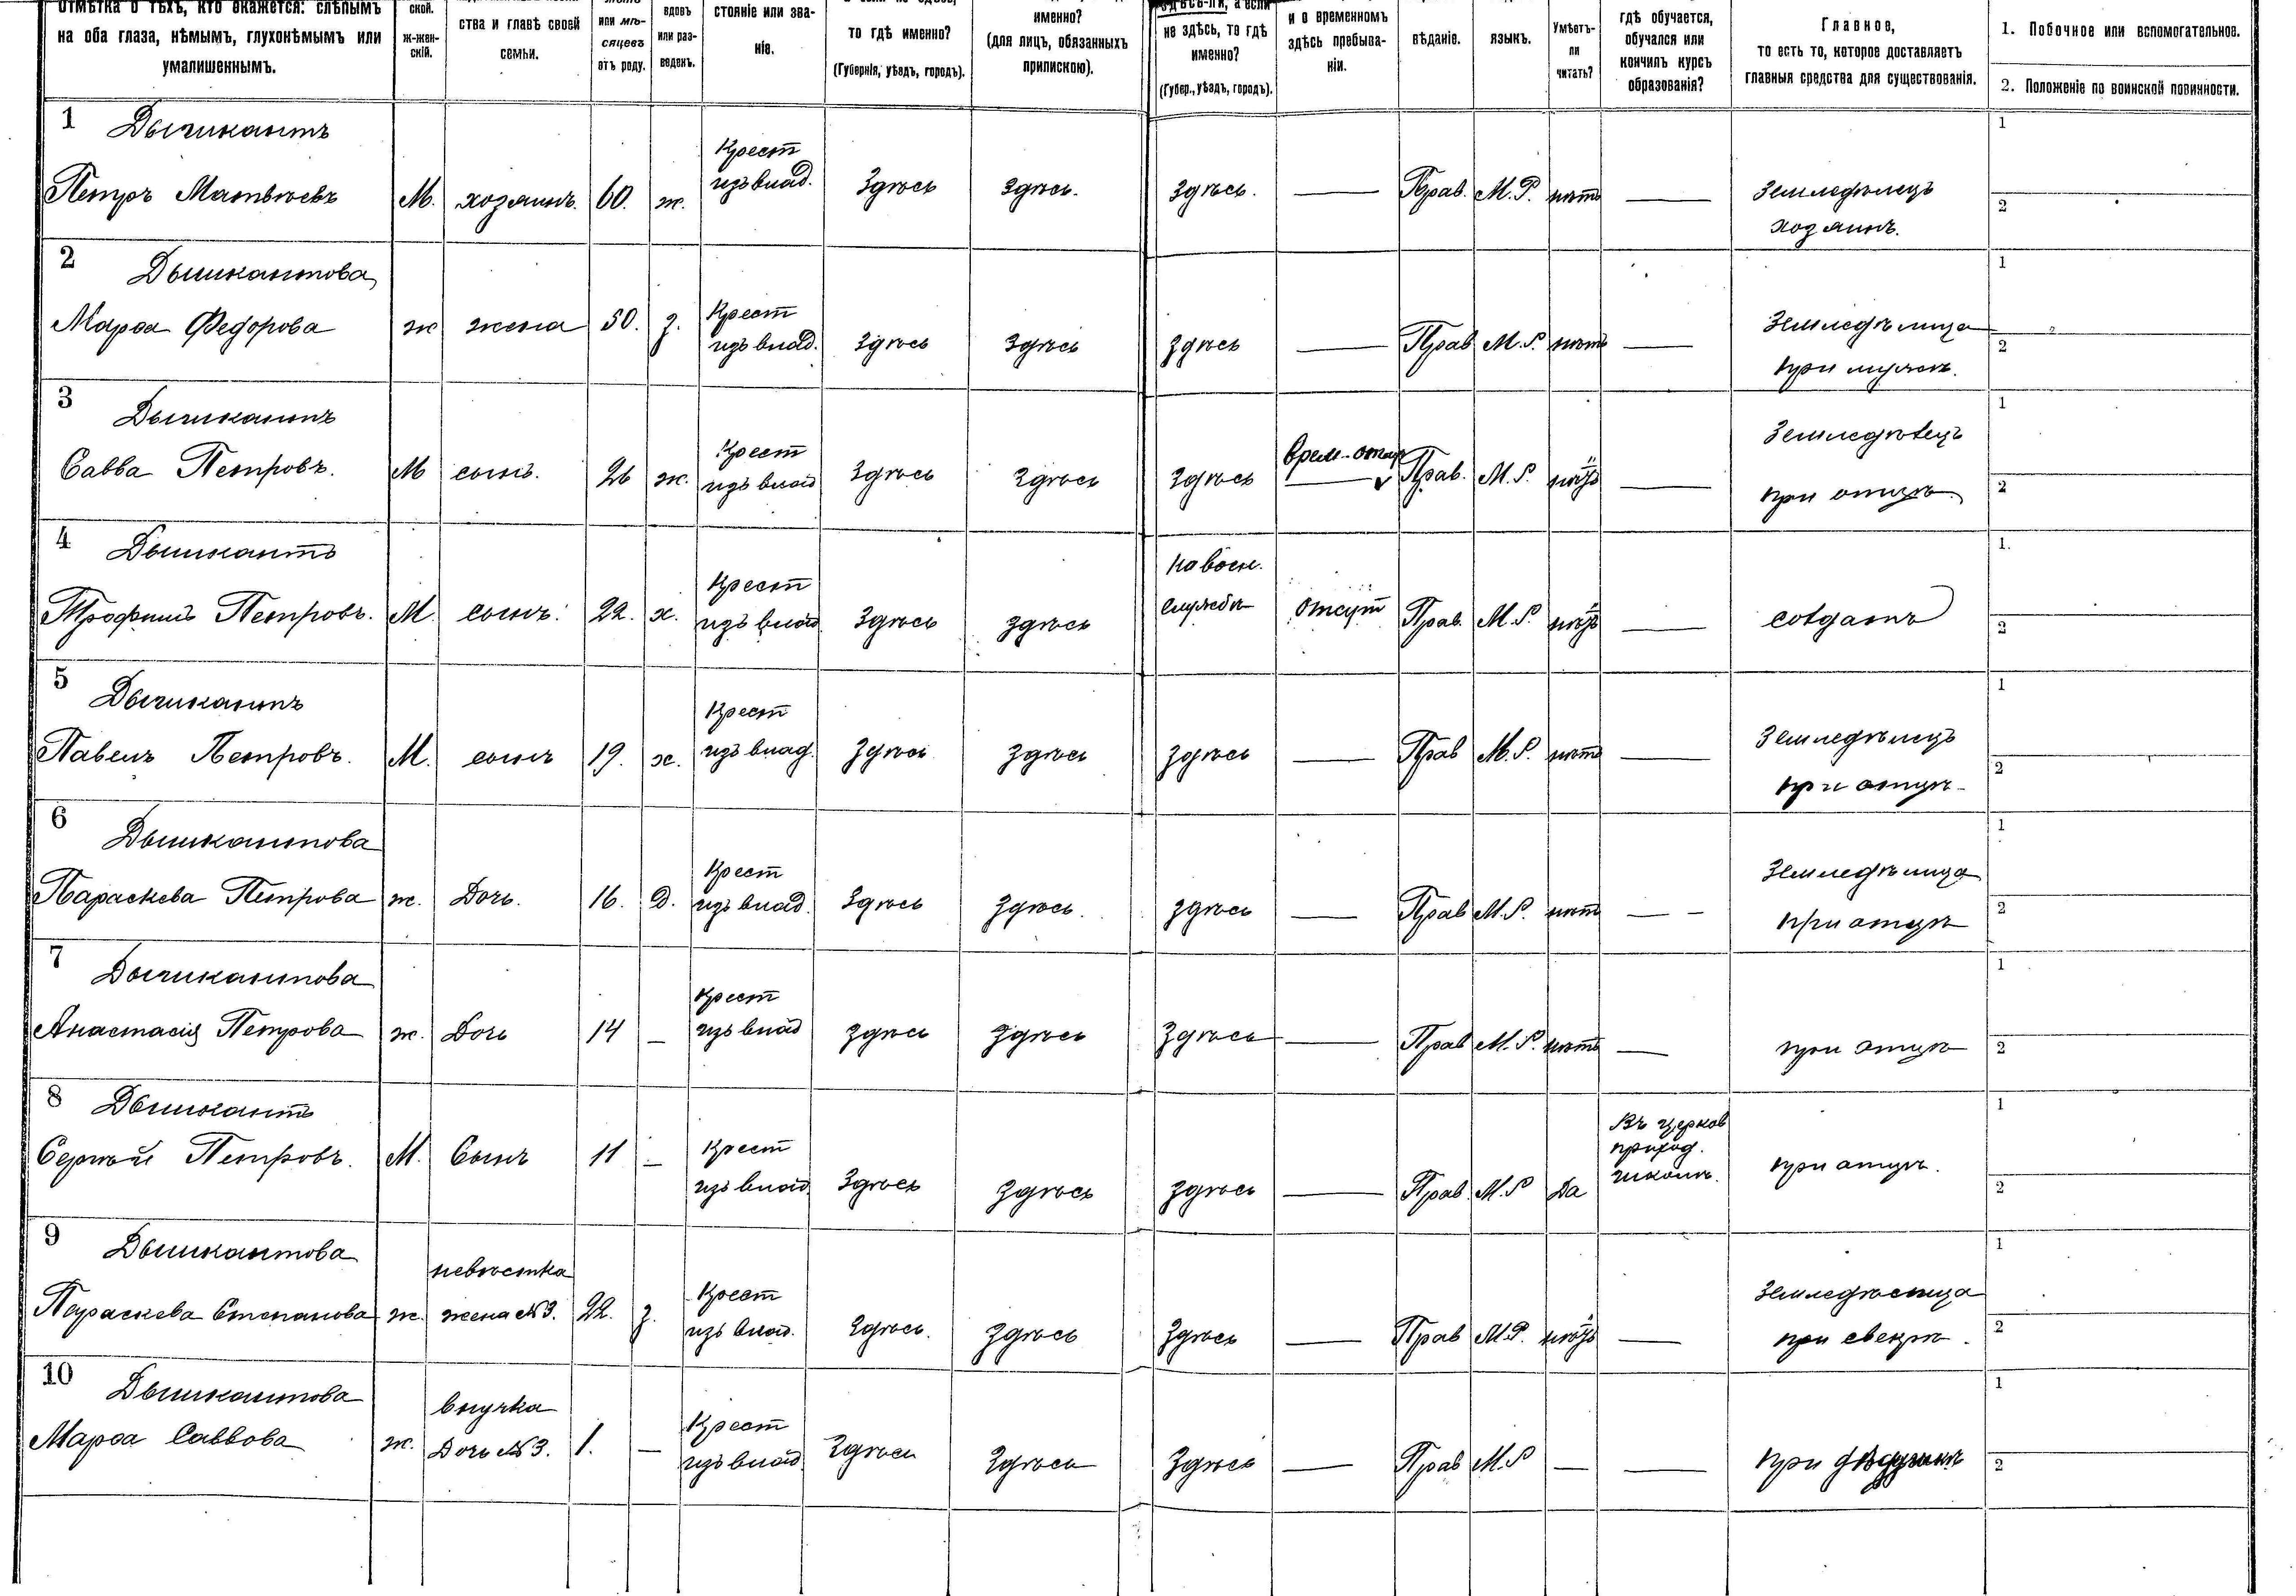 отмѣтка о тѣхъ, кто окажется: слѣпымъ на оба глаза, нѣмымъ, глухонѣмымъ или умалишеннымъ.
ской. ж-жен-скій.
ства и главѣ своей семьи.
или мѣ-сяцевъ отъ роду.
вдовъ или раз-веденъ.
стояніе или зва-ніе.
то гдѣ именно? (Губернія, уѣздъ, городъ).
именно? (для лицъ, обязанныхъ припискою).
здѣсь-ли, а если не здѣсь, то гдѣ именно? (Губер., уѣздъ, городъ).
и о временномъ здѣсь пребыва-ніи.
вѣданіе.
языкъ.
Умѣетъ-ли читать?
гдѣ обучается, обучался или кончилъ курсъ образованія?
Главное, то есть то, которое доставляетъ главныя средства для существованія.
1. Побочное или вспомогательное.
2. Положеніе по воинской повинности.
1 Дышкантъ
Петръ Матвѣевъ М. хозяинъ. 60. ж. Крест изъ влад. Здѣсь Здѣсь. Здѣсь. — Прав. М.Р. нѣтъ — Земледѣлецъ хозяинъ. 1 2
2 Дышкантова
Марѳа Федорова ж жена 50. з. Крест изъ влад. Здѣсь Здѣсь Здѣсь — Прав М.Р. нѣтъ — Земледѣлица при мужѣ. 1 2
3 Дышкантъ
Савва Петровъ. М сынъ. 26 ж. Крест изъ влад Здѣсь Здѣсь Здѣсь Прав. М.Р. — Земледѣлецъ при отцѣ. 1 2
4 Дышкантъ
Трофимъ Петровъ. М. сынъ. 22. х. Крест изъ влад Здѣсь здѣсь на воен. службѣ отсут Прав. М.Р. — солдатъ 1. 2
5 Дышкантъ
Павелъ Петровъ. М. сынъ 19. х. Крест изъ влад. Здѣсь Здѣсь Здѣсь — Прав М.Р. нѣтъ — Земледѣлецъ при отцѣ 1 2
6 Дышкантова
Параскева Петрова ж. Дочь. 16. Д. Крест изъ влад. Здѣсь Здѣсь. Здѣсь — Прав М.Р. нѣт — Земледѣлица при отцѣ 1 2
7 Дышкантова
Анастасія Петрова ж. Дочь 14 — Крест изъ влад Здѣсь Здѣсь Здѣсь — Прав М.Р. нѣтъ — при отцѣ 1 2
8 Дышкантъ
Сергѣй Петровъ. М. Сынъ 11 — Крест изъ влад. Здѣсь Здѣсь Здѣсь — Прав. М.Р Да Въ церков приход. школѣ. при отцѣ. 1 2
9 Дышкантова
Параскева Степанова ж. невѣстка жена №3. 22. з. Крест изъ влад. Здѣсь. Здѣсь Здѣсь — Прав М.Р. — Земледѣлица при свекрѣ. 1 2
10 Дышкантова
Марѳа Саввова ж. внучка Дочь №3. 1. — Крест изъ влад. Здѣсь Здѣсь Здѣсь — Прав М.Р — — при 1 2